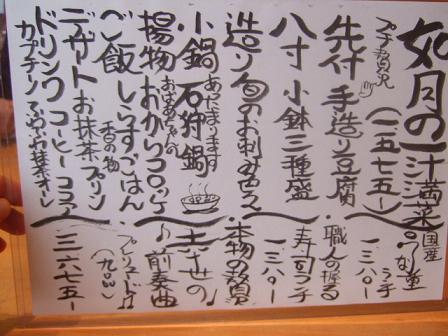 如月の一汁満菜
プチ贅沢
(一五七五〜)
先付 手造り豆腐
八寸 小鉢三種盛
造り 旬のお刺身色々
小鍋 石狩鍋
あたたまります
揚物 おからコロッケ
おばあちゃんの
ご飯 しらすごはん
香の物
デザート お抹茶プリン
ドリンク コーヒー ココア
カプチーノ お抹茶オレ
国産
うな重
ランチ
一三八〇-
職人の握る
寿司ランチ
一三八〇-
本物の贅
幸せの
前奏曲
プレリュード
三六七五-